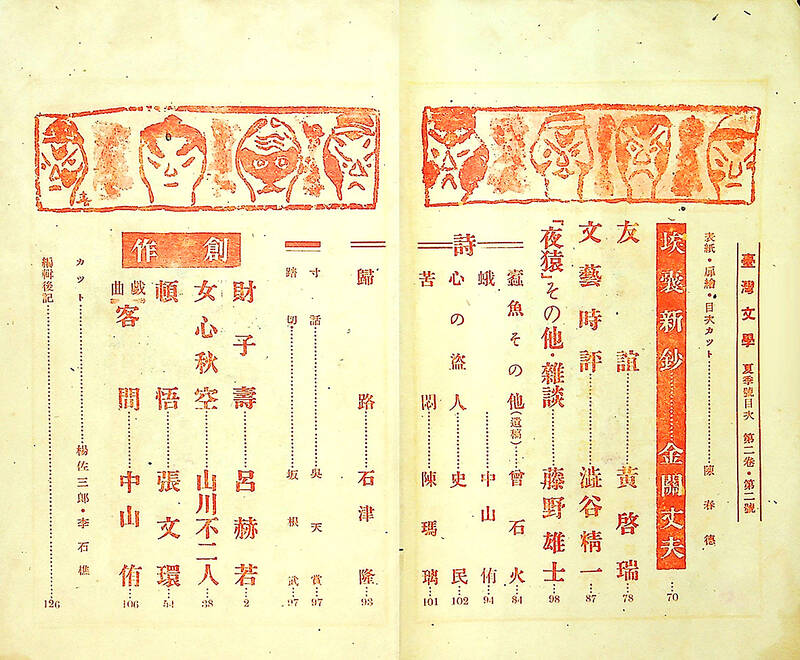 臺灣文學 夏季號目次 第二卷・第二號
表紙・扉繪・目次カット………陳春德
埃囊新鈔………金關丈夫…70
友誼………黃啓瑞…78
文藝時評………澁谷精一…87
「夜猿」その他・雜談………藤野雄士…98
詩
蠹魚その他(遺稿)…曾石火…84
蛾………中山侑…94
心の盗人………史民…102
苦悶………陳瑪璃…101
歸路………石津隆…93
寸話………吳天賞…97
踏切………坂根武…97
創作
財子壽………呂赫若…2
女心秋空………山川不二人…38
頓悟………張文環…54
戲曲 客間………中山侑…106
カット………楊佐三郎・李石樵
編輯後記………126